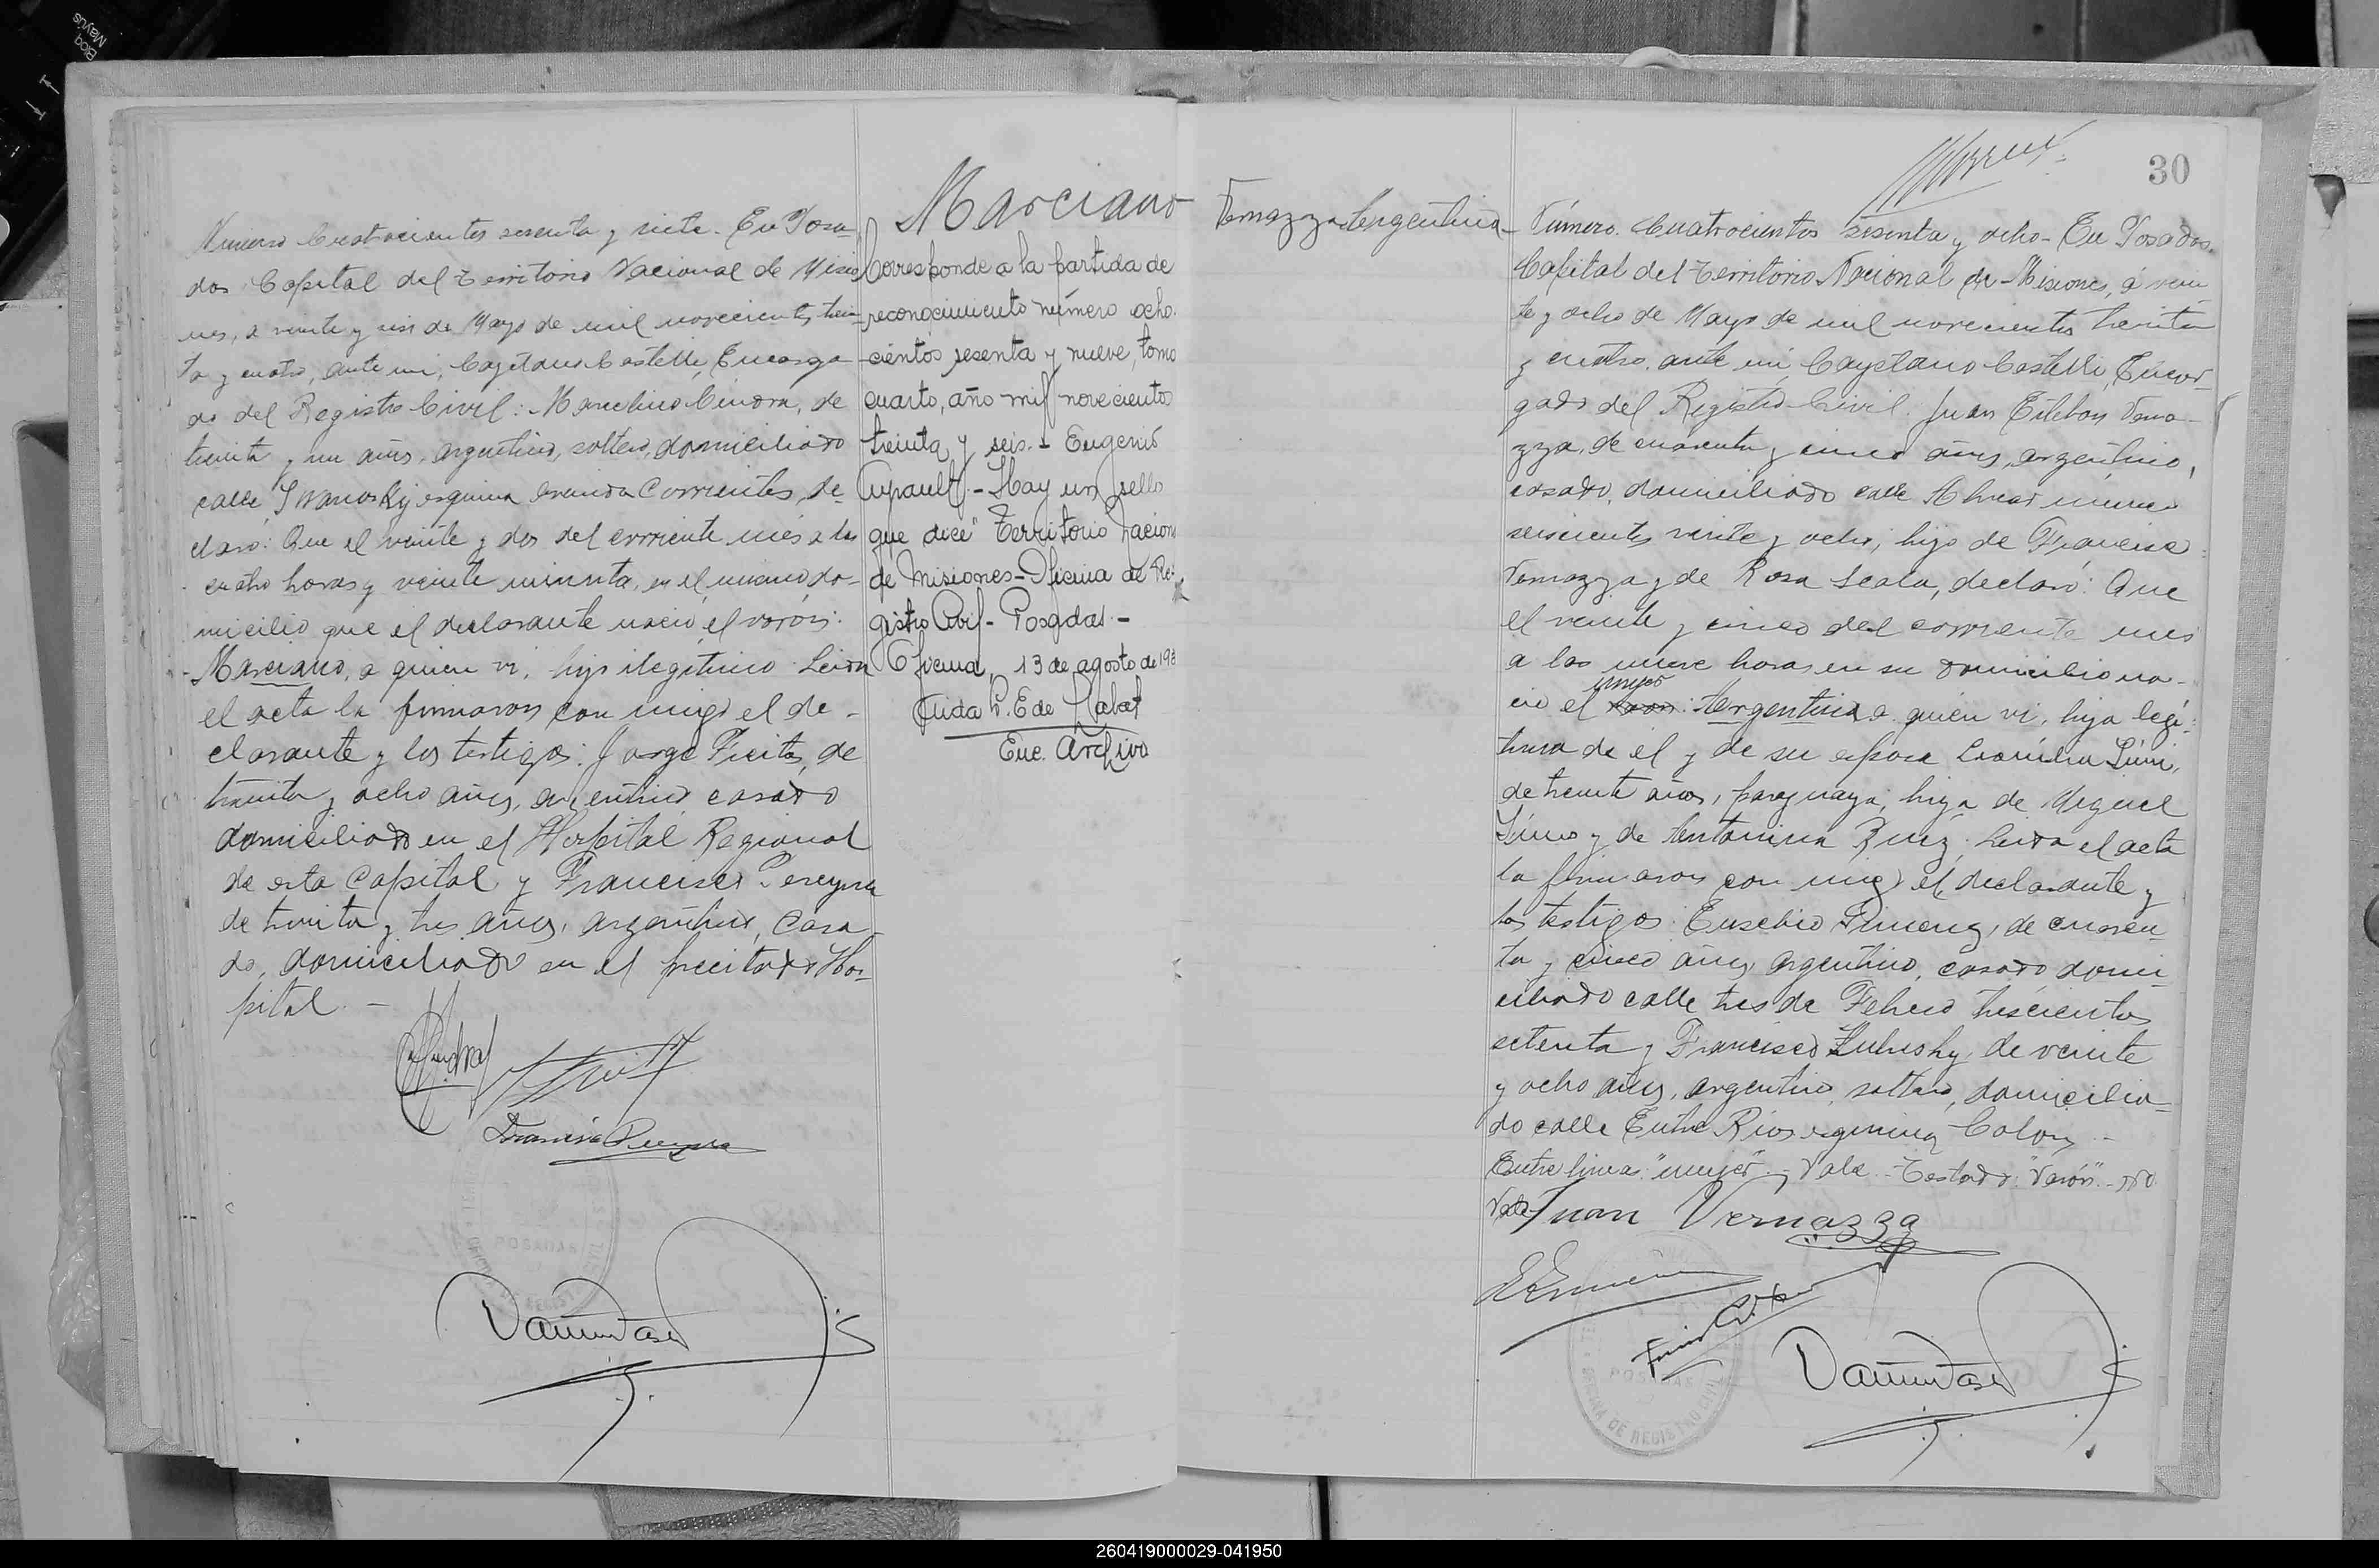 Bloq
Mayús
Numero Cuatrocientos sesenta y siete. En Posa-
das Capital del Territorio Nacional de Misio-
nes, a veinte y seis de Mayo de mil novecientos trein-
ta y cuatro, ante mi, Cayetano Castelli, Encarga-
do del Registro Civil: Marcelino Cendra, de
treinta y un años, argentino, soltero, domiciliado
calle Ivanosky esquina avenida Corrientes, de-
claró: Que el veinte y dos del corriente mes a las
cuatro horas y veinte minutos, en el mismo do-
micilio que el declarante nació el varón:
Marciano, a quien vi, hijo ilegitimo. Leida
el acta la firmaron con migo el de-
clarante y los testigos: Jorge Freita, de
treinta y ocho años, argentino casado
domiciliado en el Hospital Regional
de esta Capital y Francisco Pereyra
de treinta y tres años, argentino, casa-
do, domiciliado en el precitado Hos-
pital. -
Francisco Pereyra
POSADAS
Marciano
Corresponde a la partida de
reconocimiento número ocho-
cientos sesenta y nueve, tomo
cuarto, año mil novecientos
treinta y seis.- Eugenio
Cupault.- Hay un sello
que dice "Territorio Nacion
de Misiones- Oficina de Re-
gistro Civil- Posadas.-
Oficina, 13 de agosto de 193
Enc. Archivo
30
Vernazza Argentina
Número. Cuatrocientos sesenta y ocho- En Posadas.
Capital del Territorio Nacional de Misiones, á vein-
te y ocho de Mayo de mil novecientos treinta
y cuatro, ante mi, Cayetano Castelli, Encar-
gado del Registro Civil. Juan Esteban Verna-
zza, de cuarenta y cinco años, argentino,
casado, domiciliado calle Alvear número
seiscientos veinte y ocho, hijo de Francisco
Vernazza y de Rosa Scala, declaró: Que
el veinte y cinco del corriente mes
a las nueve horas en su domicilio na-
mujer
ció el varon: Argentina a quien vi, hija legi-
tima de él y de su esposa
de treinta años, paraguaya, hija de Miguel
y de Antonina Ruiz. Leida el acta
la firmaron con migo el declarante y
los testigos: Eusebio Jimenez, de cuaren-
ta y cinco años argentino, casado domi-
ciliado calle tres de Febrero trescientos
setenta y Francisco Zubresky, de veinte
y ocho años, argentino, soltero, domicilia-
do calle Entre Rios esquina Colon, -
Entre lineas: "mujer" - Vale - Testado: "Varón" - No
Vale
Juan Vernazza
POSADAS
OFICINA DE REGISTRO CIVIL
260419000029-041950